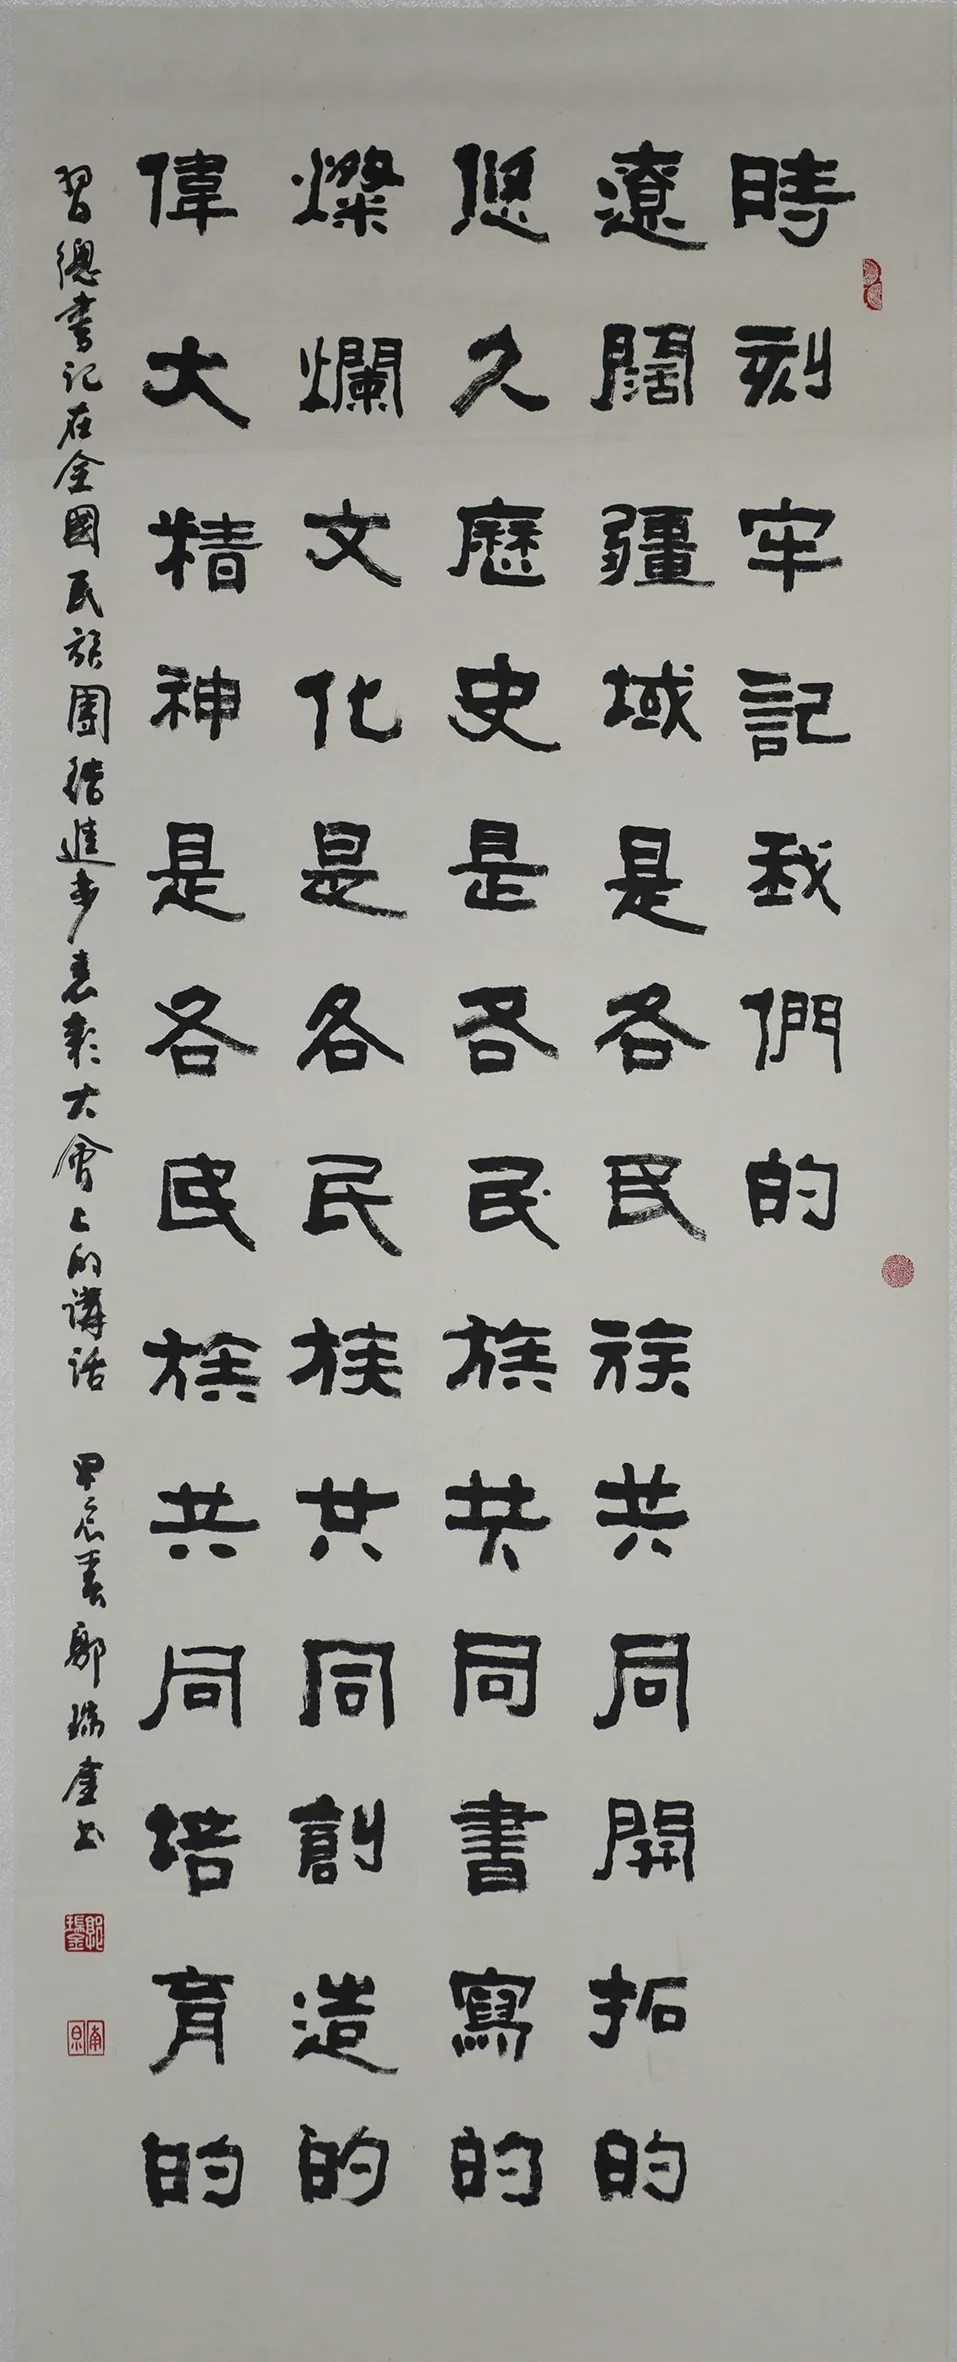 時刻牢記我們的
遼闊疆域是各民族共同開拓的
悠久歷史是各民族共同書寫的
燦爛文化是各民族共同創造的
偉大精神是各民族共同培育的
習總書記在全國民族團結進步表彰大會上的講話 甲辰春郭瑞金书